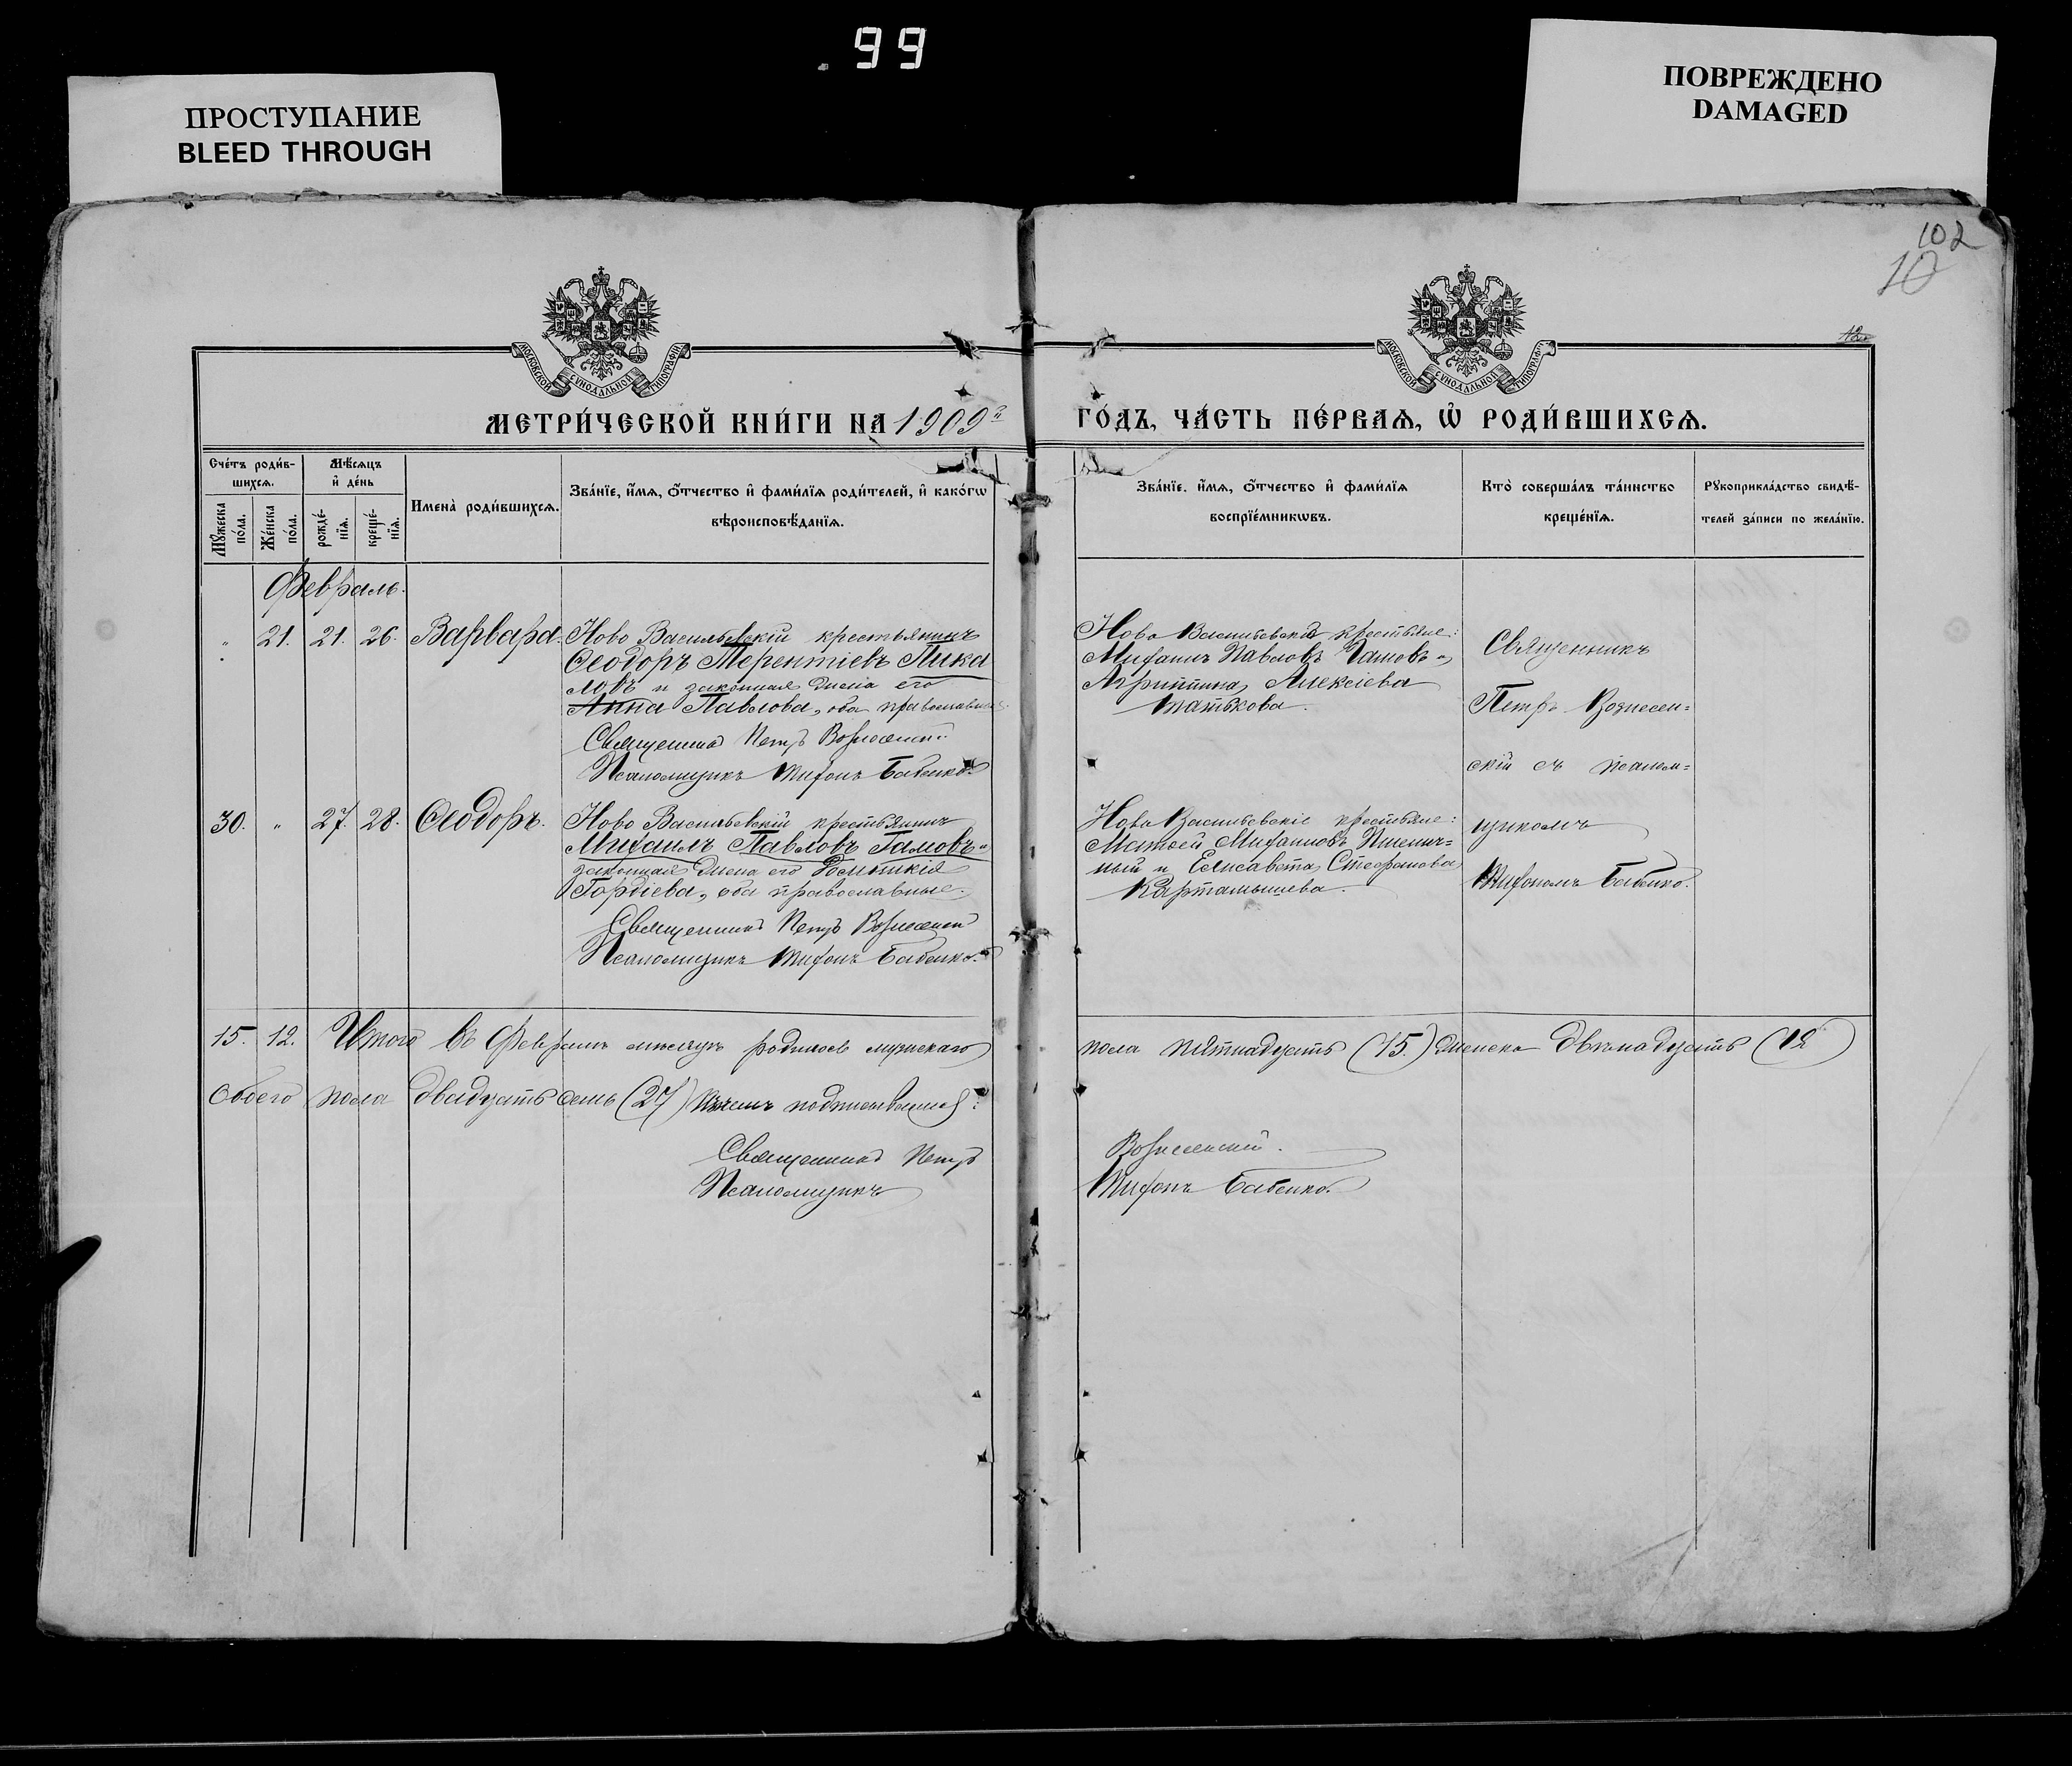 . 99
ПРОСТУПАНИЕ
BLEED THROUGH
ПОВРЕЖДЕНО
DAMAGED
102
10
МОСКОВСКОЙ СѴНОДАЛЬНОЙ ТИПОГРАФІИ
МОСКОВСКОЙ СѴНОДАЛЬНОЙ ТИПОГРАФІИ
МЕТРИ́ЧЕСКОЙ КНИ́ГИ НА 1909 ГО́ДЪ, ЧА́СТЬ ПЕ́РВАЯ, Ѡ҆ РОДИ́ВШИХСЯ.
Сче́тъ роди́вшихся.
Мѣ́сяцъ и҆ де́нь
Мꙋ́жеска по́ла.
Же́нска по́ла.
рожде́нїя.
креще́нїя.
Имена̀ роди́вшихся.
Зва́нїе, и҆́мя, ѻ҆́тчество и҆ фами́лїя роди́телей, и҆ како́гѡ
вѣроисповѣ́данїя.
Зва́нїе. и҆́мя, ѻ҆́тчество и҆ фами́лїя
воспрїе́мникѡвъ.
Кто̀ соверша́лъ та́инство
креще́нїя.
Рꙋкоприкла́дство свидѣ́-
телей за́писи по жела́нїю.
Февраль.
" 21. 21. 26. Варвара.
Ново Васильевскій крестьянинъ
Ѳеодоръ Терентіевъ Пика
ловъ и законная жена его
Анна Павлова, оба православные.
Священникъ Петръ Вознесенскій
Псаломщикъ Тифонъ Бабенко.
Ново Васильевскіе крестьяне:
Михаилъ Павловъ Гамовъ и
Агриппина Алексіева
Священникъ
Петръ Вознесен=
скій съ псалом=
щикомъ
Тифономъ Бабенко.
30. " 27. 28. Ѳеодоръ.
Ново Васильевскій крестьянинъ
Михаилъ Павловъ Гамовъ и
законная жена его Домникія
Гордіева, оба православные.
Священникъ Петръ Вознесенскій
Псаломщикъ Тифонъ Бабенко.
Ново Васильевскіе крестьяне:
Матѳей Михаиловъ Пшенич=
ный и Елисавета Стефанова
Картамышева.
15. 12. Итого въ Февралѣ мѣсяцѣ родилось мужескаго пола пятнадцать (15.) женска двѣнадцать (12)
Обоего пола двадцать семь (27) въ чемъ подписываемся:
Священникъ Петръ Вознесенскій.
Псаломщикъ Тифонъ Бабенко.